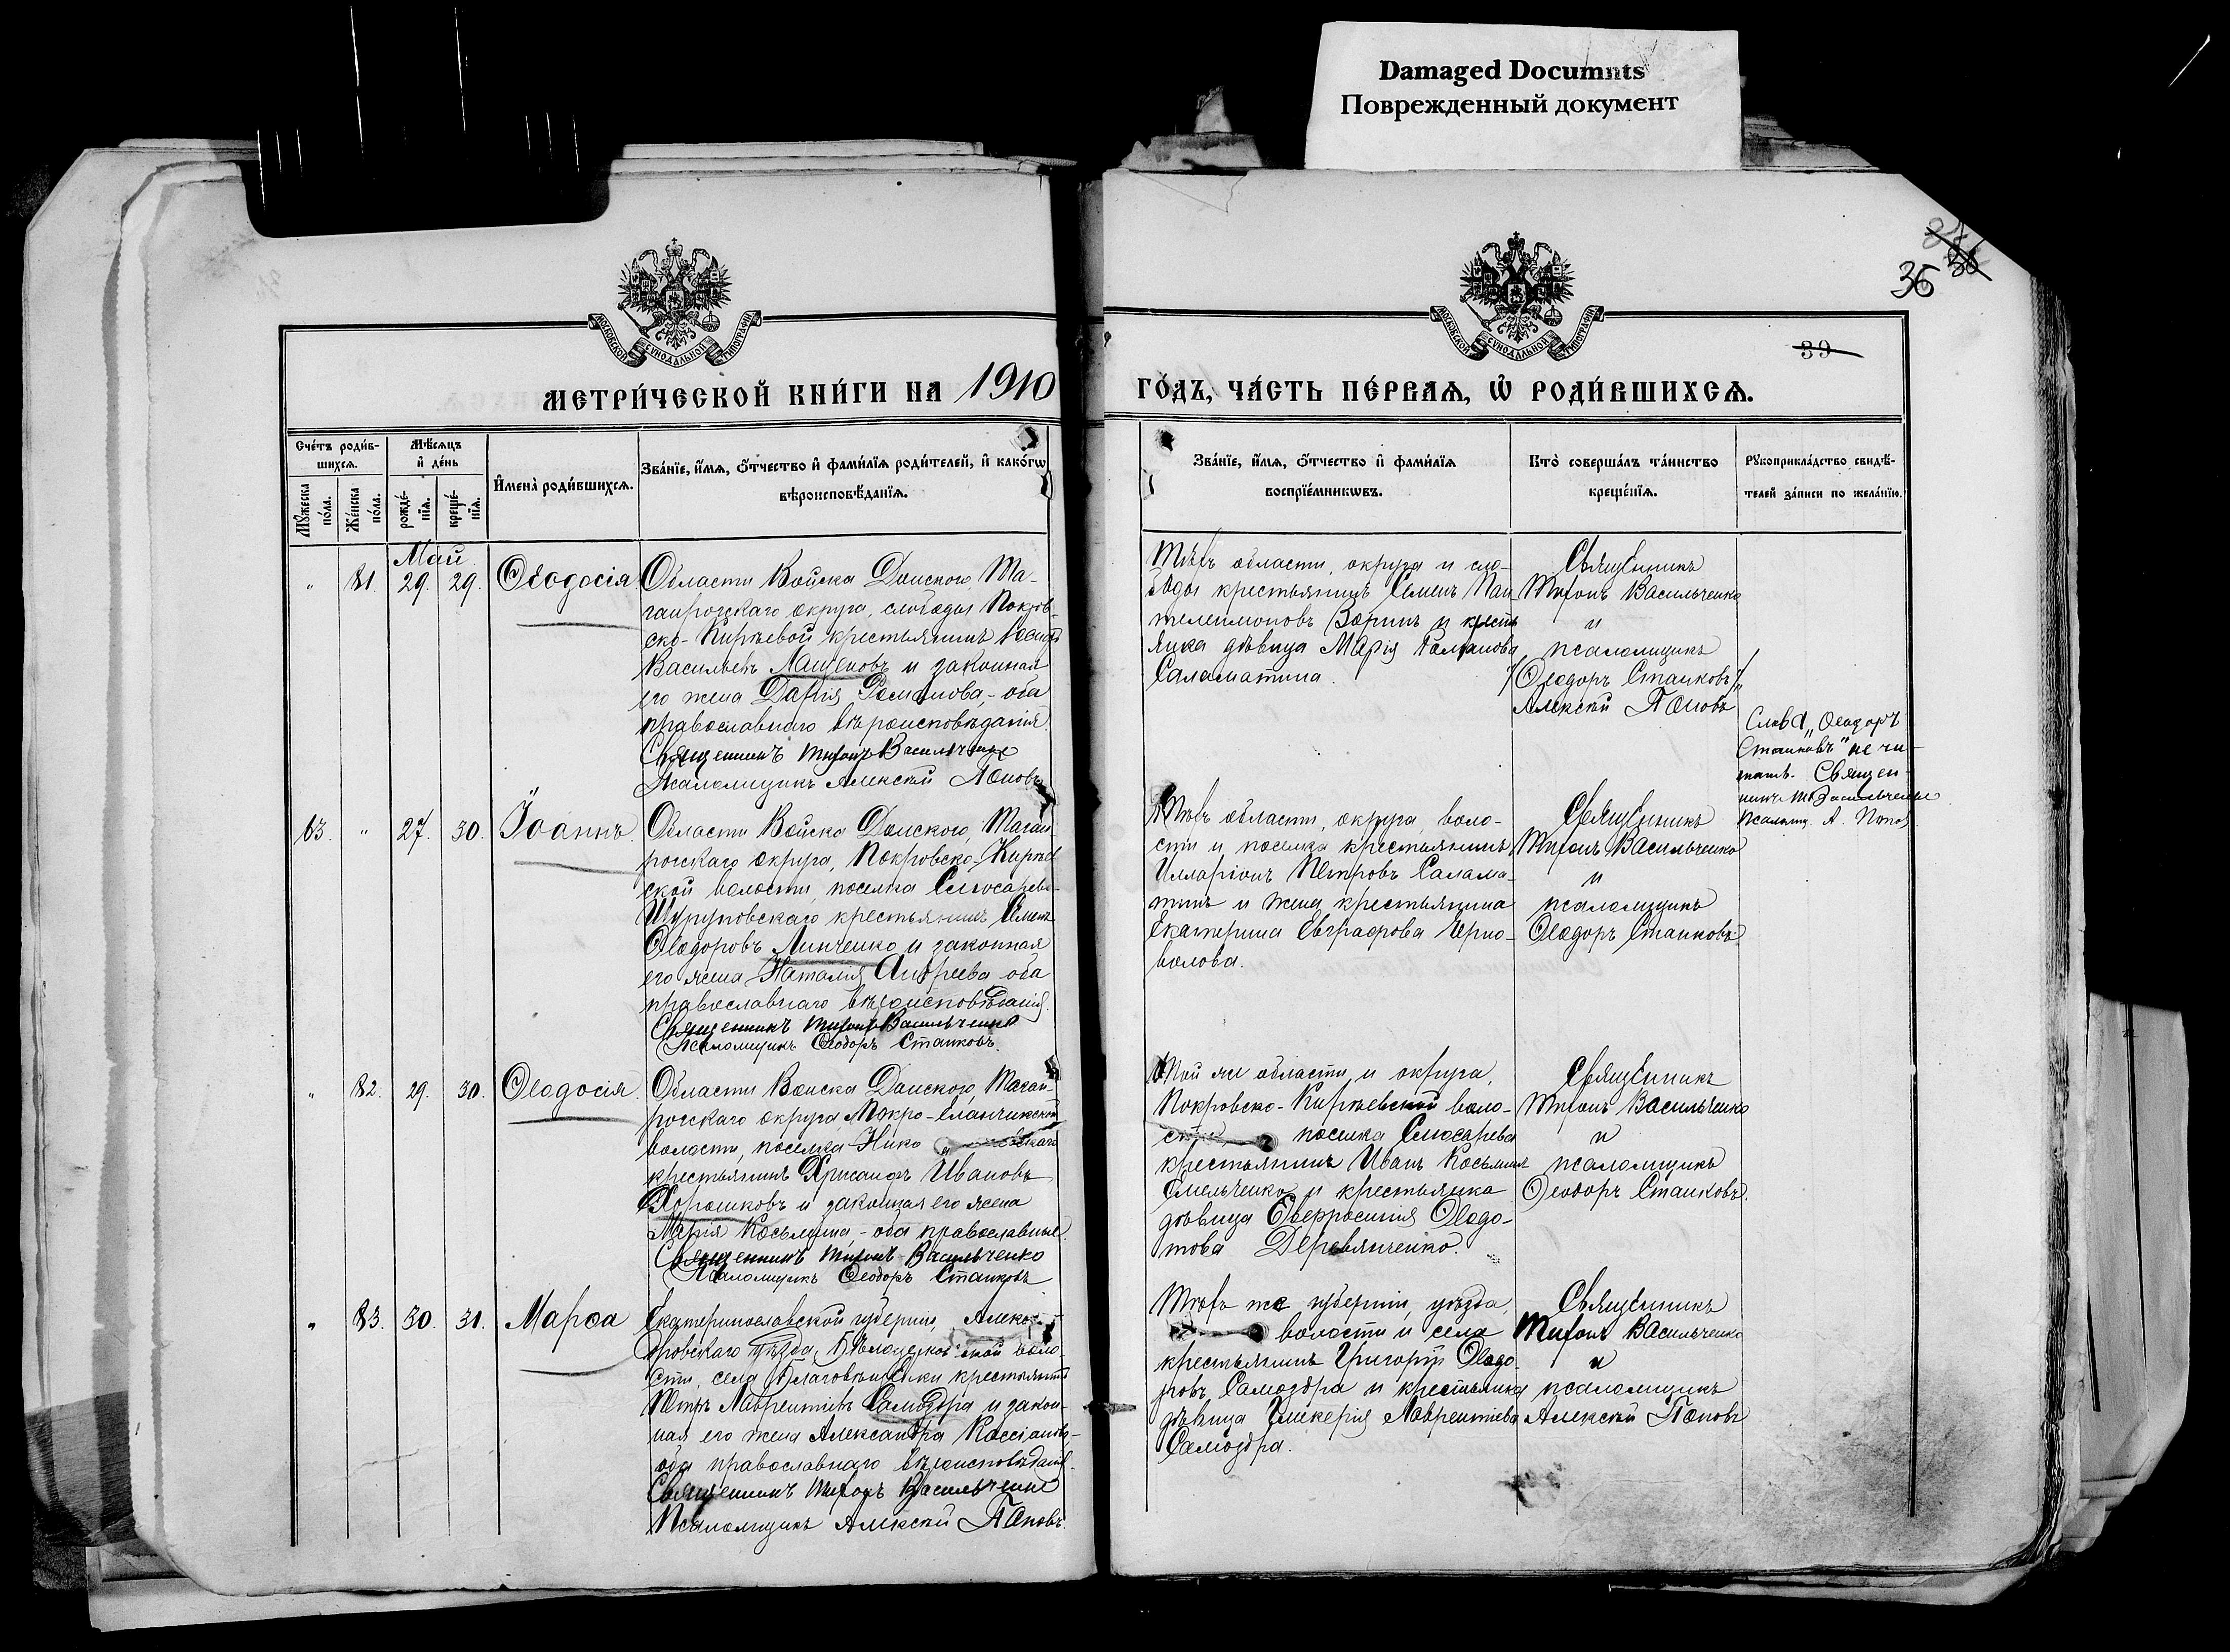 Damaged Documnts
Поврежденный документ
36
39
МОСКОВСКОЙ СѴНОДАЛЬНОЙ ТИПОГРАФІИ
МОСКОВСКОЙ СѴНОДАЛЬНОЙ ТИПОГРАФІИ
МЕТРИ́ЧЕСКОЙ КНИ́ГИ НА 1910
ГО́ДЪ, ЧА́СТЬ ПЕ́РВАѦ, Ѽ РОДИ́ВШИХСѦ.
Сче́тъ роди́в-
шихсѧ.
Мѣ́сѧцъ
и҆ де́нь
Мꙋ́жеска по́ла.
Же́нска по́ла.
рожде́-
нїѧ.
креще́-
нїѧ.
И҆мена̀ роди́вшихсѧ.
Зва́нїе, и҆́мѧ, ѻ҆́тчество и҆ фами́лїѧ роди́телей, и҆ како́гѡ
вѣроисповѣ́данїѧ.
Зва́нїе, и҆́мѧ, ѻ҆́тчество и҆ фами́лїѧ
воспрїе́мникѡвъ.
Кто̀ соверша́лъ та́инство
креще́нїѧ.
Рꙋкоприкла́дство свидѣ́-
телей за́писи по жела́нїю.
Май
" 81. 29. 29. Ѳеодосія
Области Войска Донского, Та-
ганрогскаго округа, слободы Покров-
ско-Кирѣевой крестьянинъ Іосифъ
Васильевъ Лащеновъ и законная
его жена Дарія Романова, - оба
православнаго вѣроисповѣданія.
Священникъ Тихонъ Васильченко
Псаломщикъ Алексѣй Поповъ
Тѣхъ области, округа и сло-
боды крестьянинъ Семенъ Пан-
телеимоновъ Зоринъ и кресть
янка дѣвица Марія Романова
Саламатина.
Священникъ
Тихонъ Васильченко
и
псаломщикъ
/Ѳеодоръ Станковъ/
Алексѣй Поповъ
Слова „Ѳеодоръ
Станковъ" не чи-
тать. Священ-
никъ Т. Васильченко
Псаломщ. А. Попов
63. " 27. 30. Іоаннъ.
Области Войска Донского, Таган
рогскаго округа, Покровско-Кирѣев
ской волости, поселка Слюсарево-
Шурупповскаго крестьянинъ Семенъ
Ѳеодоровъ Линченко и законная
его жена Наталія Андреева оба
православнаго вѣроисповѣданія.
Священникъ Тихонъ Васильченко
Псаломщикъ Ѳеодоръ Станковъ.
Тѣхъ области, округа, воло-
сти и поселка крестьянинъ
Илларіонъ Петровъ Салама-
тинъ и жена крестьянина
Екатерина Евграфова Черно-
волова.
Священникъ
Тихонъ Васильченко
и
псаломщикъ
Ѳеодоръ Станковъ
" 82. 29. 30. Ѳеодосія.
Области Войска Донского, Таган-
рогскаго округа Мокро-Еланчикской
волости, поселка Нико
крестьянинъ Хрисанфъ Ивановъ
Хорошковъ и законная его жена
Марія Косьмина, - оба православные.
Священникъ Тихонъ Васильченко
Псаломщикъ Ѳеодоръ Станковъ
Той же области и округа,
Покровско-Кирѣевской воло-
поселка Слюсарева
крестьянинъ Иванъ Косьминъ
Емельченко и крестьянка
дѣвица Евфросинія Ѳеодо-
това Деревянченко.
Священникъ
Тихонъ Васильченко
и
псаломщикъ
Ѳеодоръ Станковъ.
" 83. 30. 31. Марѳа
Екатеринославской губерніи, Алекс
дровскаго уѣзда, воло-
сти, села Благовѣщенки крестьянинъ
Петръ Лаврентіевъ Самоздра и закон-
ная его жена Александра Кассіанова,-
оба православнаго вѣроисповѣданія.
Священникъ Тихонъ Васильченко
Псаломщикъ Алексѣй Поповъ.
Тѣхъ же губерніи, уѣзда,
волости и села
крестьянинъ Григорій Ѳеодо-
ровъ Самоздра и крестьянка
дѣвица Гликерія Лаврентіева
Самоздра.
Священникъ
Тихонъ Васильченко
и
псаломщикъ
Алексѣй Поповъ